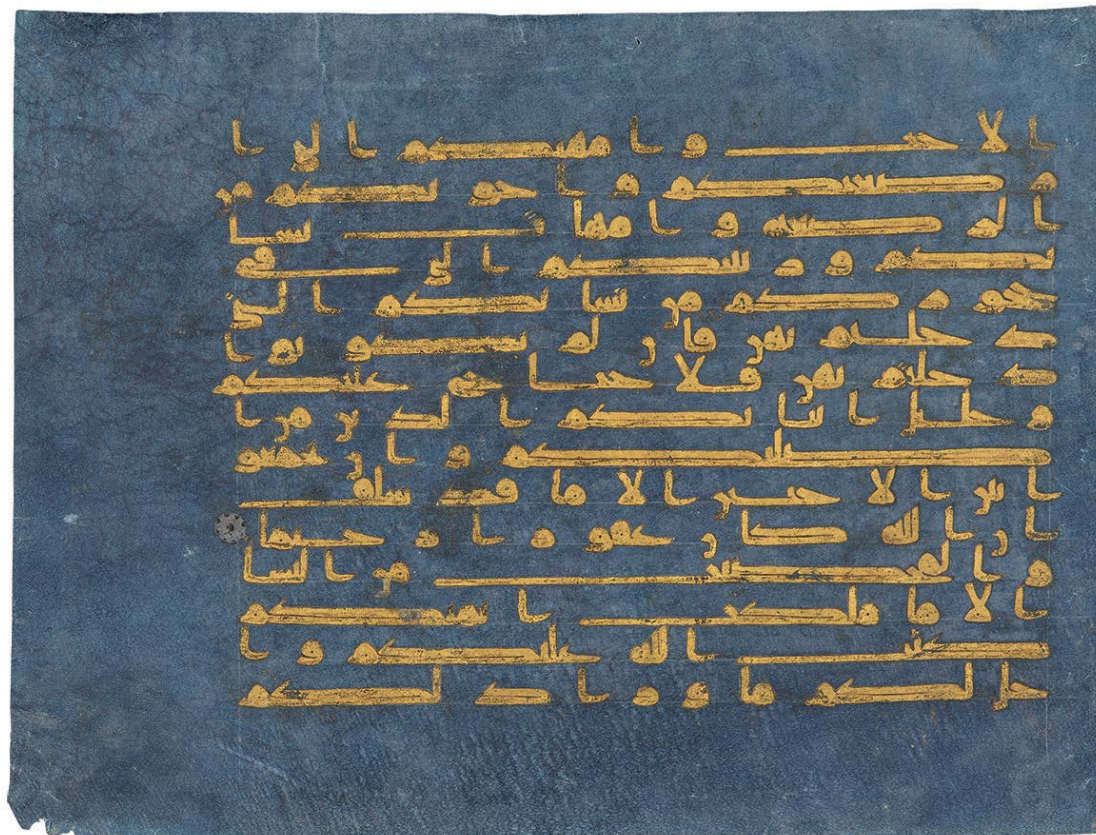 الاخت وامهتكم التي ا
رضعنكم واخوتكم من
الرضعه وامهت نسا
ئكم وربئبكم التي في
حجوركم من نسائكم التي
دخلتم بهن فان لم تكونوا
دخلتم بهن فلا جناح عليكم
وحلئل ابنائكم الذين من ا
صلبكم وان تجمعو
ا بين الاختين الا ما قد سلف
ان الله كان غفورا رحيما
والمحصنت من النسا
الا ما ملكت ايمنكم
كتب الله عليكم وا
حل لكم ما ورا ذلكم